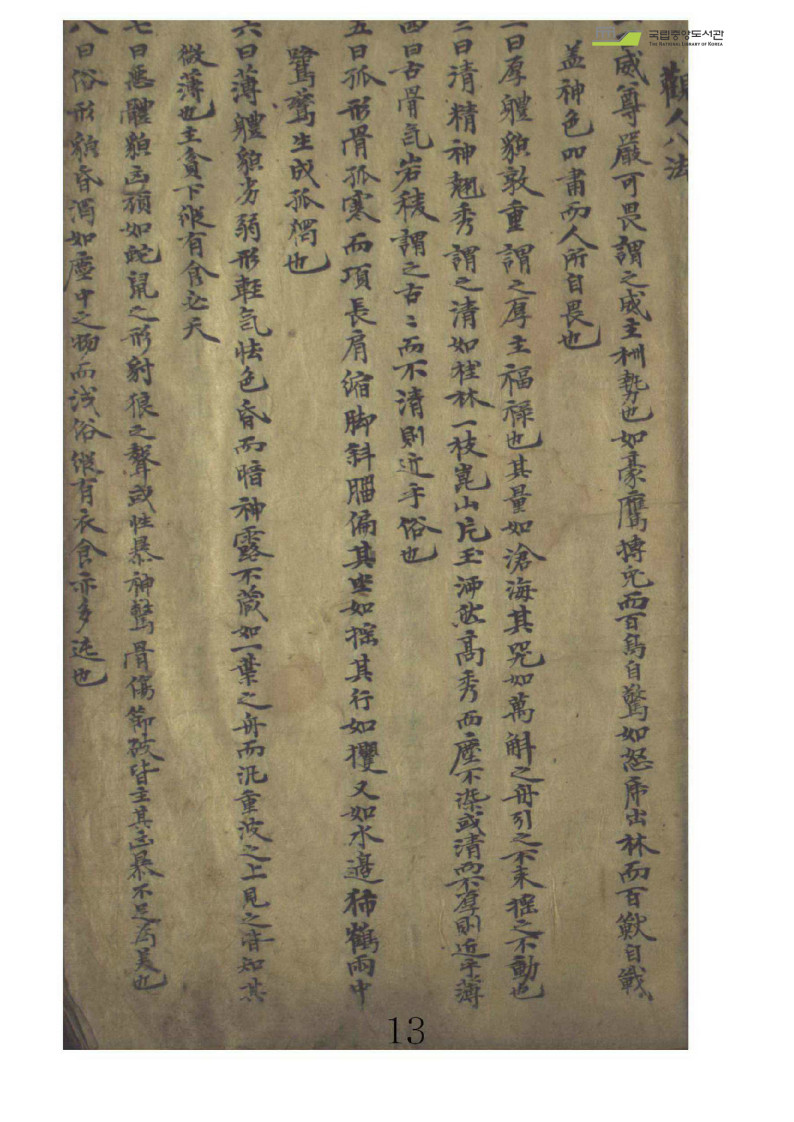 觀人八法
一威尊嚴可畏謂之威主权勢也如豪鷹搏兎而百鳥自驚如怒乕出林而百獸自戰
盖神色卬肅而人所自畏也
一曰厚軆貌敦重謂之厚主福祿也其量如滄海其咒如萬斛之舟引之不來搖之不動也
三曰清精神翹秀謂之清如桂林一枝崑山片玉洒然高秀而塵不染或清而不厚則近乎薄
四曰古骨氣岩稜謂之古〻而不清則近乎俗也
五曰孤形骨孤寒而項長肩縮脚斜腦偏其坐如搖其行如攫又如水邊獨鶴雨中
鷺鷥生成孤獨也
六曰薄軆貌劣弱形輊氣怯色昏而暗神露不藏如一葉之舟而泛重波之上見之皆知其
微薄也主貧下縱有食必夭
七曰惡軆貌凶頑如蛇鼠之形射狼之聲或性暴神驚骨傷節破皆主其凶暴不足爲美也
八曰俗形貌昏濁如塵中之物而浅俗縱有衣食亦多迍也
13
국립중앙도서관
THE NATIONAL LIBRARY OF KOREA